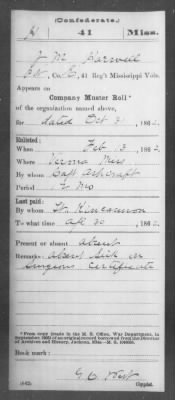 (Confederate.)
41 Miss.
J M Harwell
Pvt, Co. E, 41 Reg't Mississippi Vols.
Appears on
Company Muster Roll*
of the organization named above,
for dated Oct 31, 186
Enlisted:
When Feb 13, 186
Where Verona Miss
By whom Capt Ashcraft
Period Mo
Last paid:
By whom Lt. Kincannon
To what time Apl 30, 186
Present or absent Absent
Remarks: Absent sick on
surgeons certificate
*From copy (made in the M. S. Office, War Department, in
September 1903) of an original record borrowed from the Director
of Archives and History, Jackson, Miss.—M. S.
Book mark:
(642)
Copyist.